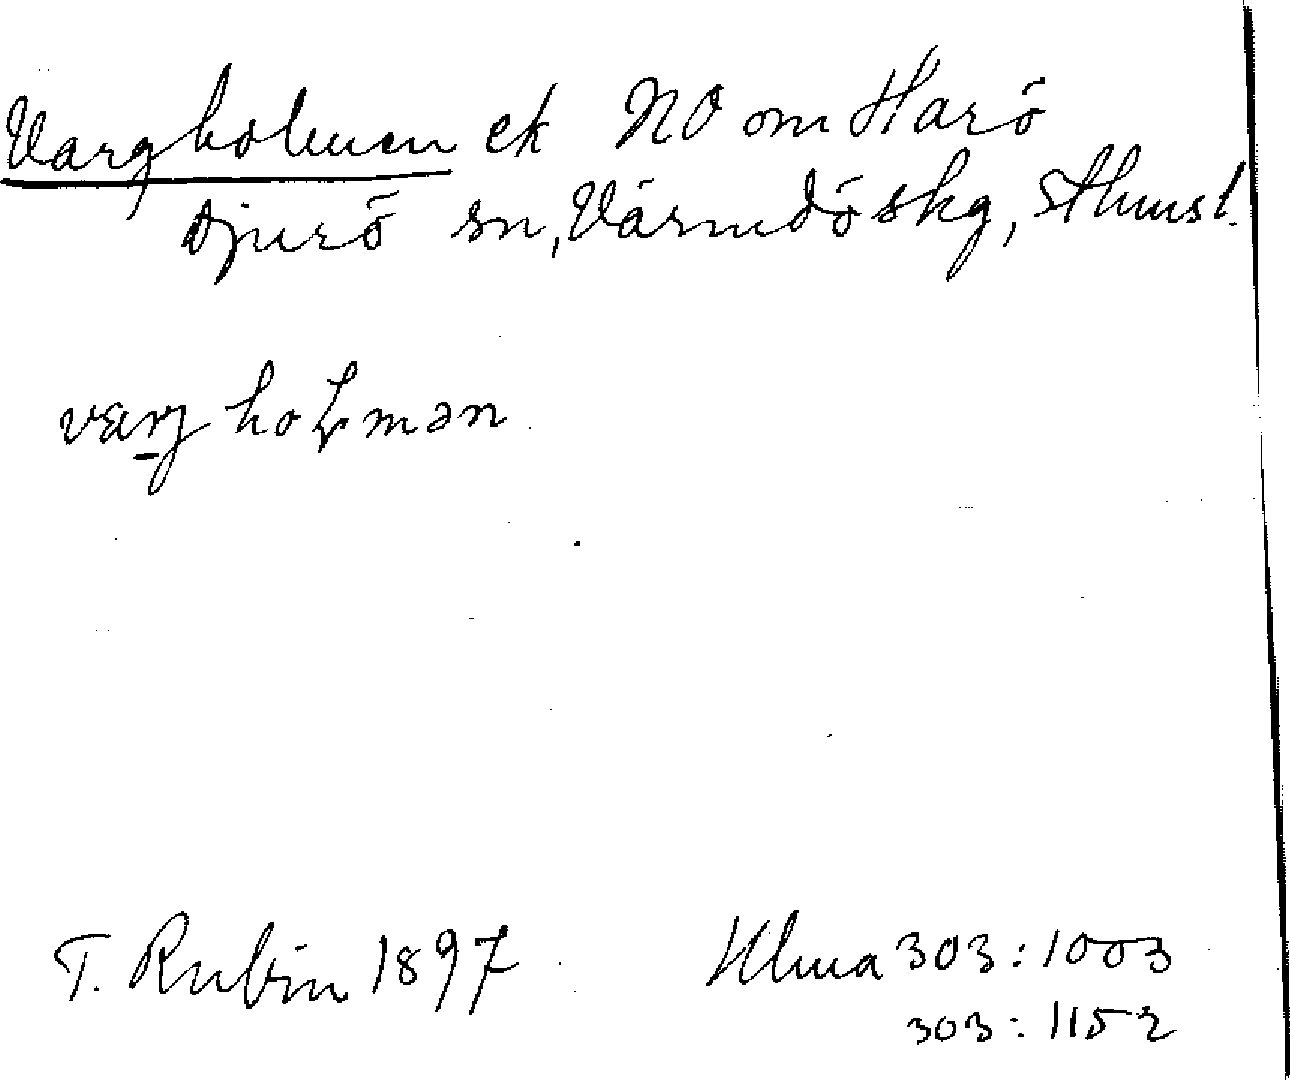 Vargholmen ek NO om Harö
Djurö sn, Värmdö skg, Sthmsl.
varg holmən
T. Rubin 1897
Ulma 303:1003
303:1152